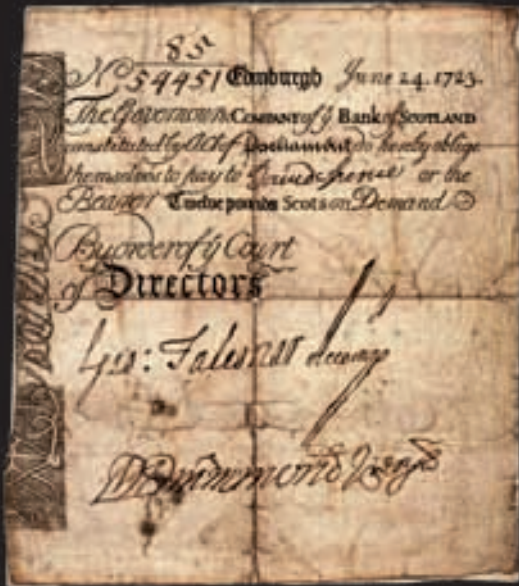 85
No 54451 Edinburgh June 24. 1723.
The Governour & COMPANY of ye BANK of SCOTLAND
constituted by Act of Parliament do hereby oblige
themselves to pay to David Spence or the
Bearer Twelve pounds Scots on Demand
By order of ye Court
of Directors
Drummond